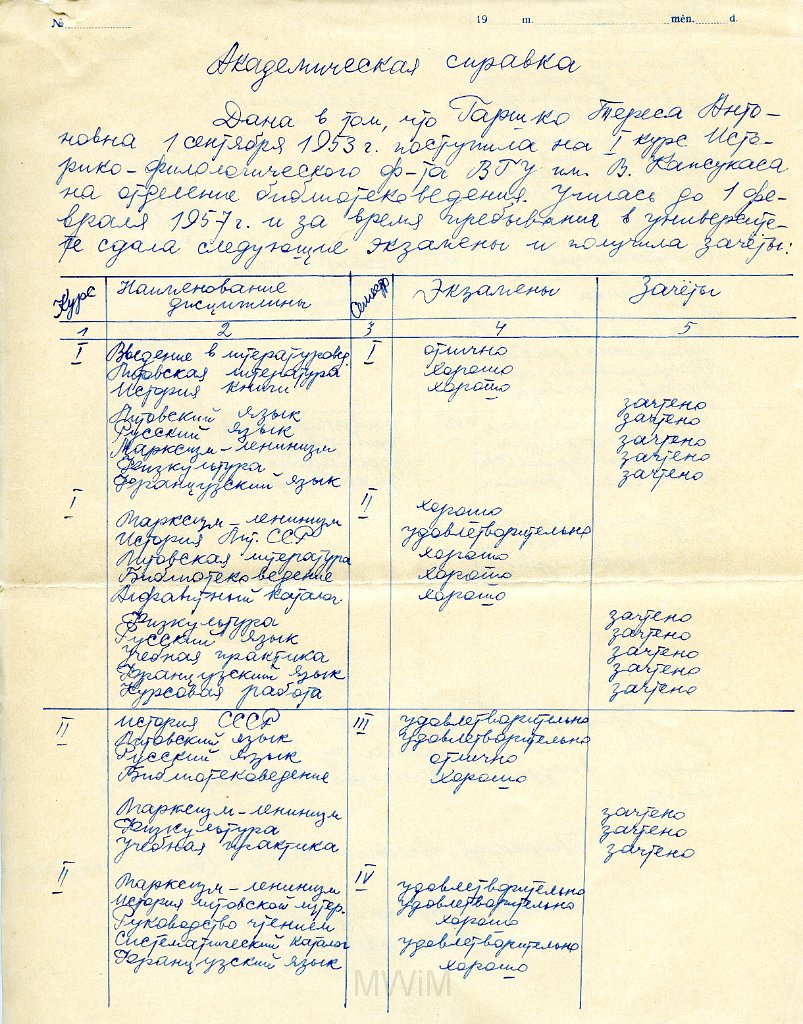 № 19 m. mėn. d.
Академическая справка
Дана в том, что Гаршко Тереса Анто-
новна 1 сентября 1953 г. поступила на I курс Исто-
рико-филологического ф-та ВГУ им. В. Капсукаса
на отделение библиотековедения. Училась до 1 фе-
враля 1957 г. и за время пребывания в университе-
те сдала следующие экзамены и получила зачёты:
Курс Наименование дисциплины Семестр Экзамены Зачёты
1 2 3 4 5
I Введение в литературовед. I отлично
Литовская литература хорошо
История книги хорошо
Литовский язык зачтено
Русский язык зачтено
Марксизм-ленинизм зачтено
Физкультура зачтено
Французский язык зачтено
I II
Марксизм-ленинизм хорошо
История Лит. ССР удовлетворительно
Литовская литература хорошо
Библиотековедение хорошо
Алфавитный каталог хорошо
Физкультура зачтено
Русский язык зачтено
Учебная практика зачтено
Французский язык зачтено
Курсовая работа зачтено
II История СССР III удовлетворительно
Литовский язык удовлетворительно
Русский язык отлично
Библиотековедение хорошо
Марксизм-ленинизм зачтено
Физкультура зачтено
Учебная практика зачтено
II Марксизм-ленинизм IV удовлетворительно
История литовской литер. удовлетворительно
Руководство чтением хорошо
Систематический каталог удовлетворительно
Французский язык хорошо
MWiM